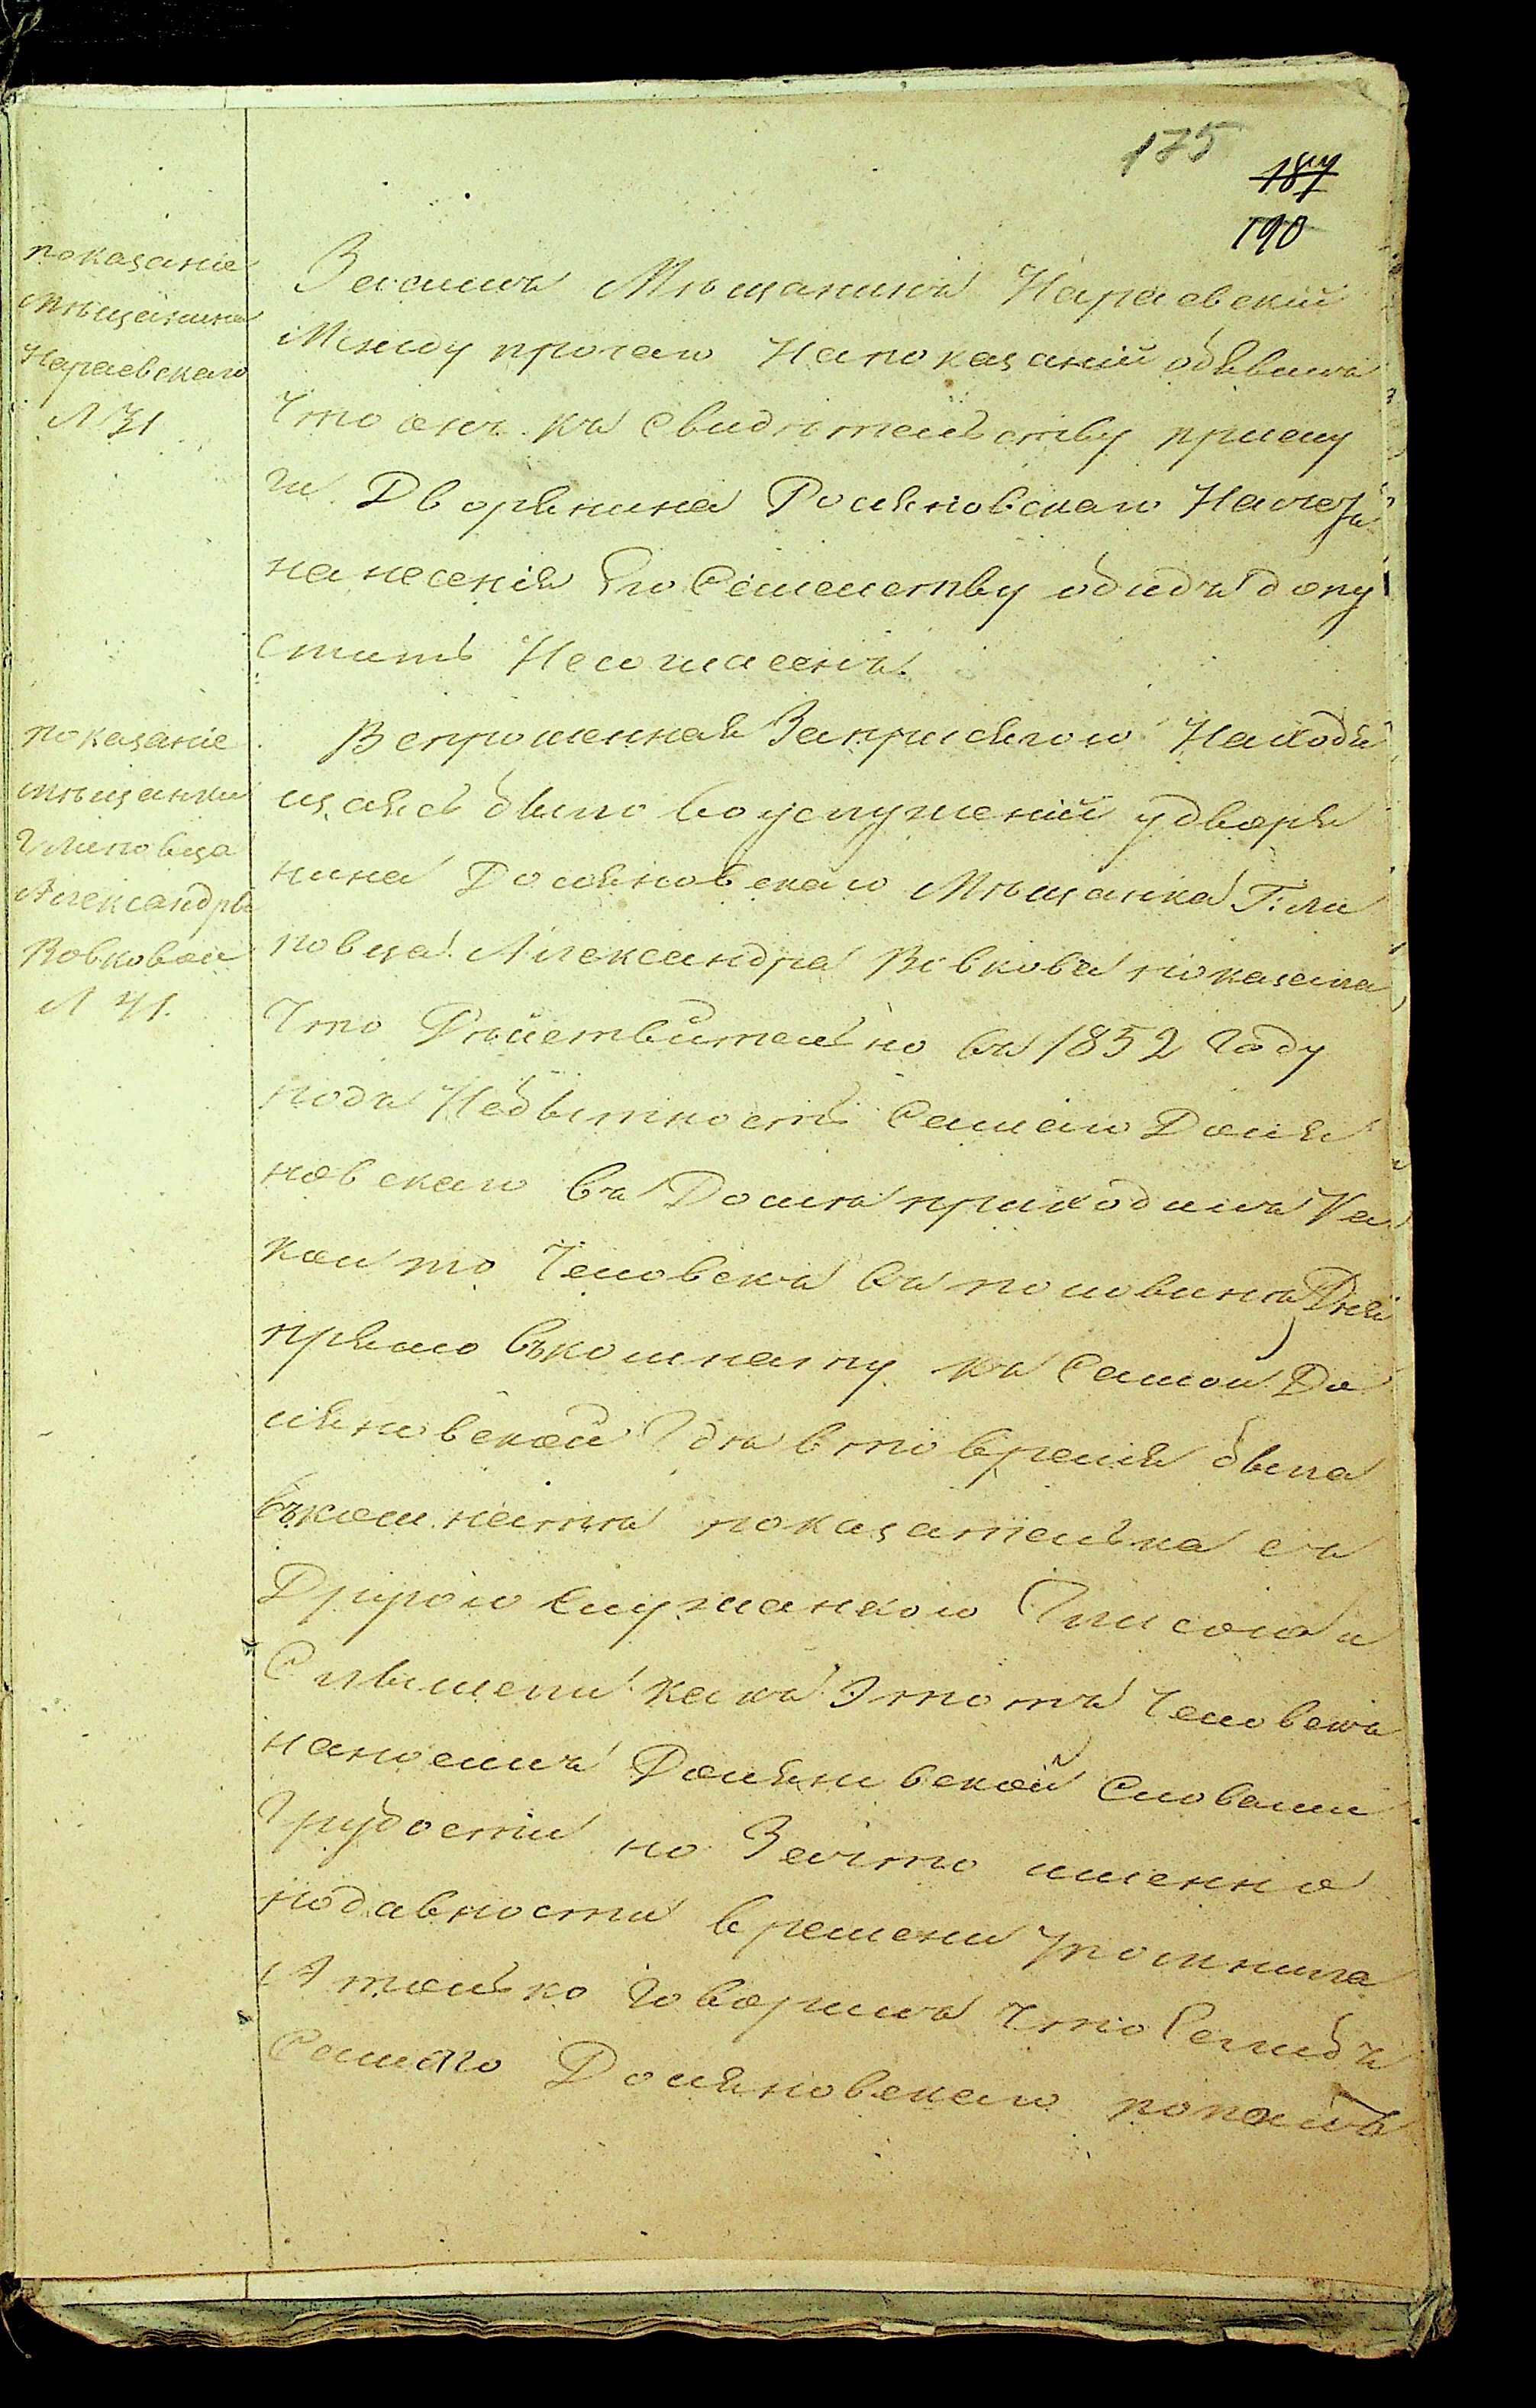 175
187
190
показаніе
мѣщанина
Нараевскаго
Л 31
Засимъ Мѣщанинъ Нараевскій
Между прочаго На показаніи объявилъ
Что онъ къ свидѣтельству присяу
ги Дворянина Доляновскаго
нанесенія Его Семеству обидъ допу
стить Несогласенъ.
показаніе
мѣщанки
Г Липовца
Александры
Вовковой
Л 41.
Вспрошенная Заприсягою Находя
щаясь было во услуженіи у дворя
нина Доляновскаго Мѣщанка Г: Ли
повца Александра Вовкова показала
Что Дѣйствительно въ 1852 Году
подъ Небытность Самаго Доля
новскаго въ Домѣ приходилъ Ка
кои то Человекъ въ половинѣ Дня
прямо въкомнату къ Самои До
ляновской Гдѣ вто время была
въкомнатѣ показателька съ
Другою служанкою и
Слышели какъ Этотъ Человекъ
наносилъ Доляновской Словами
Грубости но Зачто именно
подавности времени упомнила
А только Говорилъ что Еслибъ
Самаго Доляновскаго